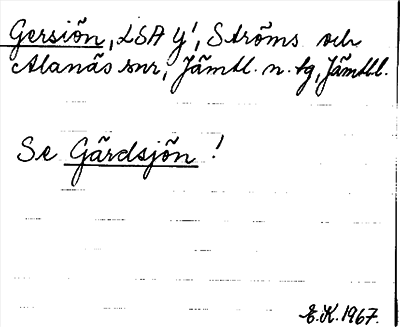 Gersiön, LSA y', Ströms och
Alanäs snr, Jämtl. n. tg, Jämtl.
Se Gärdsjön!
E.K. 1967.